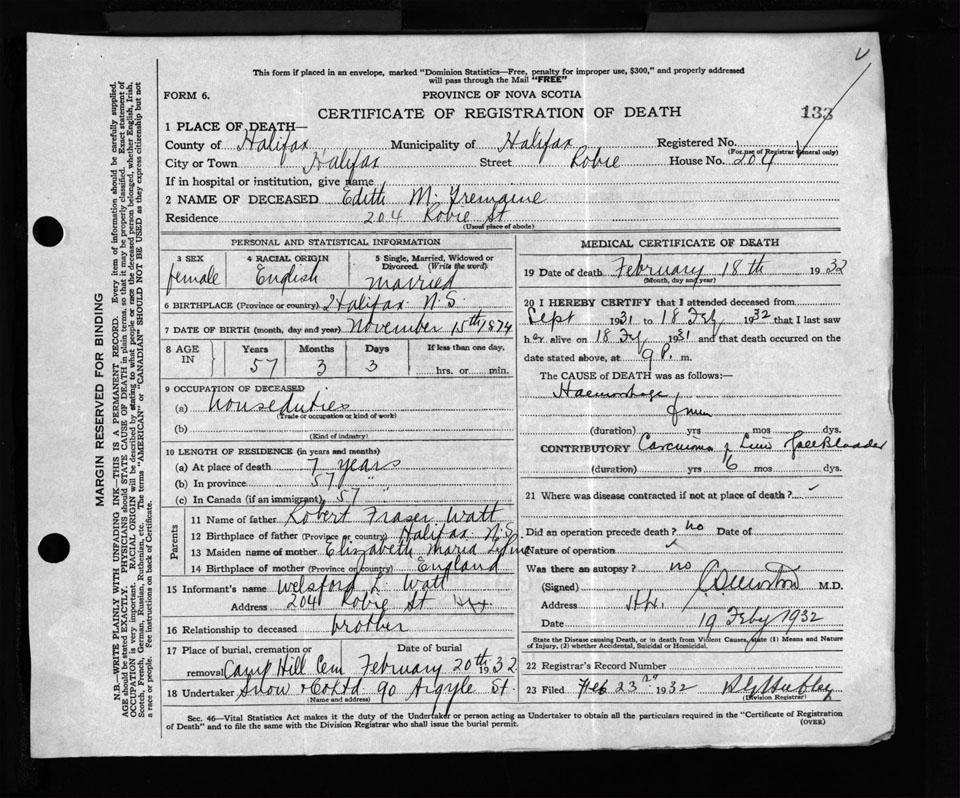 This form if placed in an envelope, marked "Dominion Statistics—Free, penalty for improper use, $300," and properly addressed
will pass through the Mail "FREE"
FORM 6.
PROVINCE OF NOVA SCOTIA
CERTIFICATE OF REGISTRATION OF DEATH
133
1 PLACE OF DEATH—
County of Halifax Municipality of Halifax Registered No.
(For use of Registrar General only)
City or Town Halifax Street Robie House No. 204
If in hospital or institution, give name
2 NAME OF DECEASED Edith M. Tremaine
Residence 204 Robie St
(Usual place of abode)
PERSONAL AND STATISTICAL INFORMATION
3 SEX female
4 RACIAL ORIGIN English
5 Single, Married, Widowed or Divorced. (Write the word) married
6 BIRTHPLACE (Province or country) Halifax N.S.
7 DATE OF BIRTH (month, day and year) November 15th 1874
8 AGE IN Years 57 Months 3 Days 3 If less than one day, hrs. or min.
9 OCCUPATION OF DECEASED
(a) houseduties
(Trade or occupation or kind of work)
(b)
(Kind of industry)
10 LENGTH OF RESIDENCE (in years and months)
(a) At place of death 7 years
(b) In province 57 "
(c) In Canada (if an immigrant) 57 "
Parents
11 Name of father Robert Fraser Watt
12 Birthplace of father (Province or country) Halifax N.S.
13 Maiden name of mother Elizabeth Maria
14 Birthplace of mother (Province or country) England
15 Informant's name Welsford L. Watt
Address 204 Robie St Hfx
16 Relationship to deceased brother
17 Place of burial, cremation or removal Camp Hill Cem Date of burial February 20th 1932
18 Undertaker Snow & Co Ltd 90 Argyle St.
(Name and address)
MEDICAL CERTIFICATE OF DEATH
19 Date of death February 18th 1932
(Month, day and year)
20 I HEREBY CERTIFY that I attended deceased from
Sept 1931 to 18 Feby 1932 that I last saw
her alive on 18 Fy 1931 and that death occurred on the
date stated above, at 9 P. m.
The CAUSE of DEATH was as follows:—
Haemorrhage
(duration) yrs mos dys.
CONTRIBUTORY Carcinoma of Liver Gall Bladder
(duration) yrs 6 mos dys.
21 Where was disease contracted if not at place of death?
Did an operation precede death? no Date of
Nature of operation
Was there an autopsy? no
(Signed) M.D.
Address Hfx.
Date 19 Feby 1932
State the Disease causing Death, or in death from Violent Causes, state (1) Means and Nature
of Injury, (2) whether Accidental, Suicidal or Homicidal.
22 Registrar's Record Number
23 Filed Feb 23rd 1932
(Division Registrar)
Sec. 46—Vital Statistics Act makes it the duty of the Undertaker or person acting as Undertaker to obtain all the particulars required in the "Certificate of Registration
of Death" and to file the same with the Division Registrar who shall issue the burial permit.
(OVER)
MARGIN RESERVED FOR BINDING
N.B.—WRITE PLAINLY WITH UNFADING INK—THIS IS A PERMANENT RECORD. Every item of information should be carefully supplied.
AGE should be stated EXACTLY. PHYSICIANS should STATE CAUSE OF DEATH in plain terms, so that it may be properly classified. Exact statement of
OCCUPATION is very important. RACIAL ORIGIN will be described by stating to what people or race the deceased person belonged, whether English, Irish,
Scotch, French, German, Russian, Ruthenian, etc. The terms "AMERICAN" or "CANADIAN" SHOULD NOT BE USED as they express citizenship but not
a race or people. Fee instructions on back of Certificate.